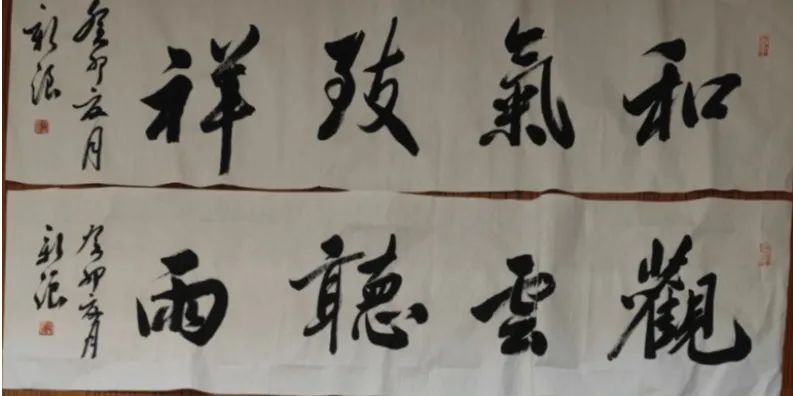 和氣致祥
癸卯夏月
觀雲聽雨
癸卯夏月